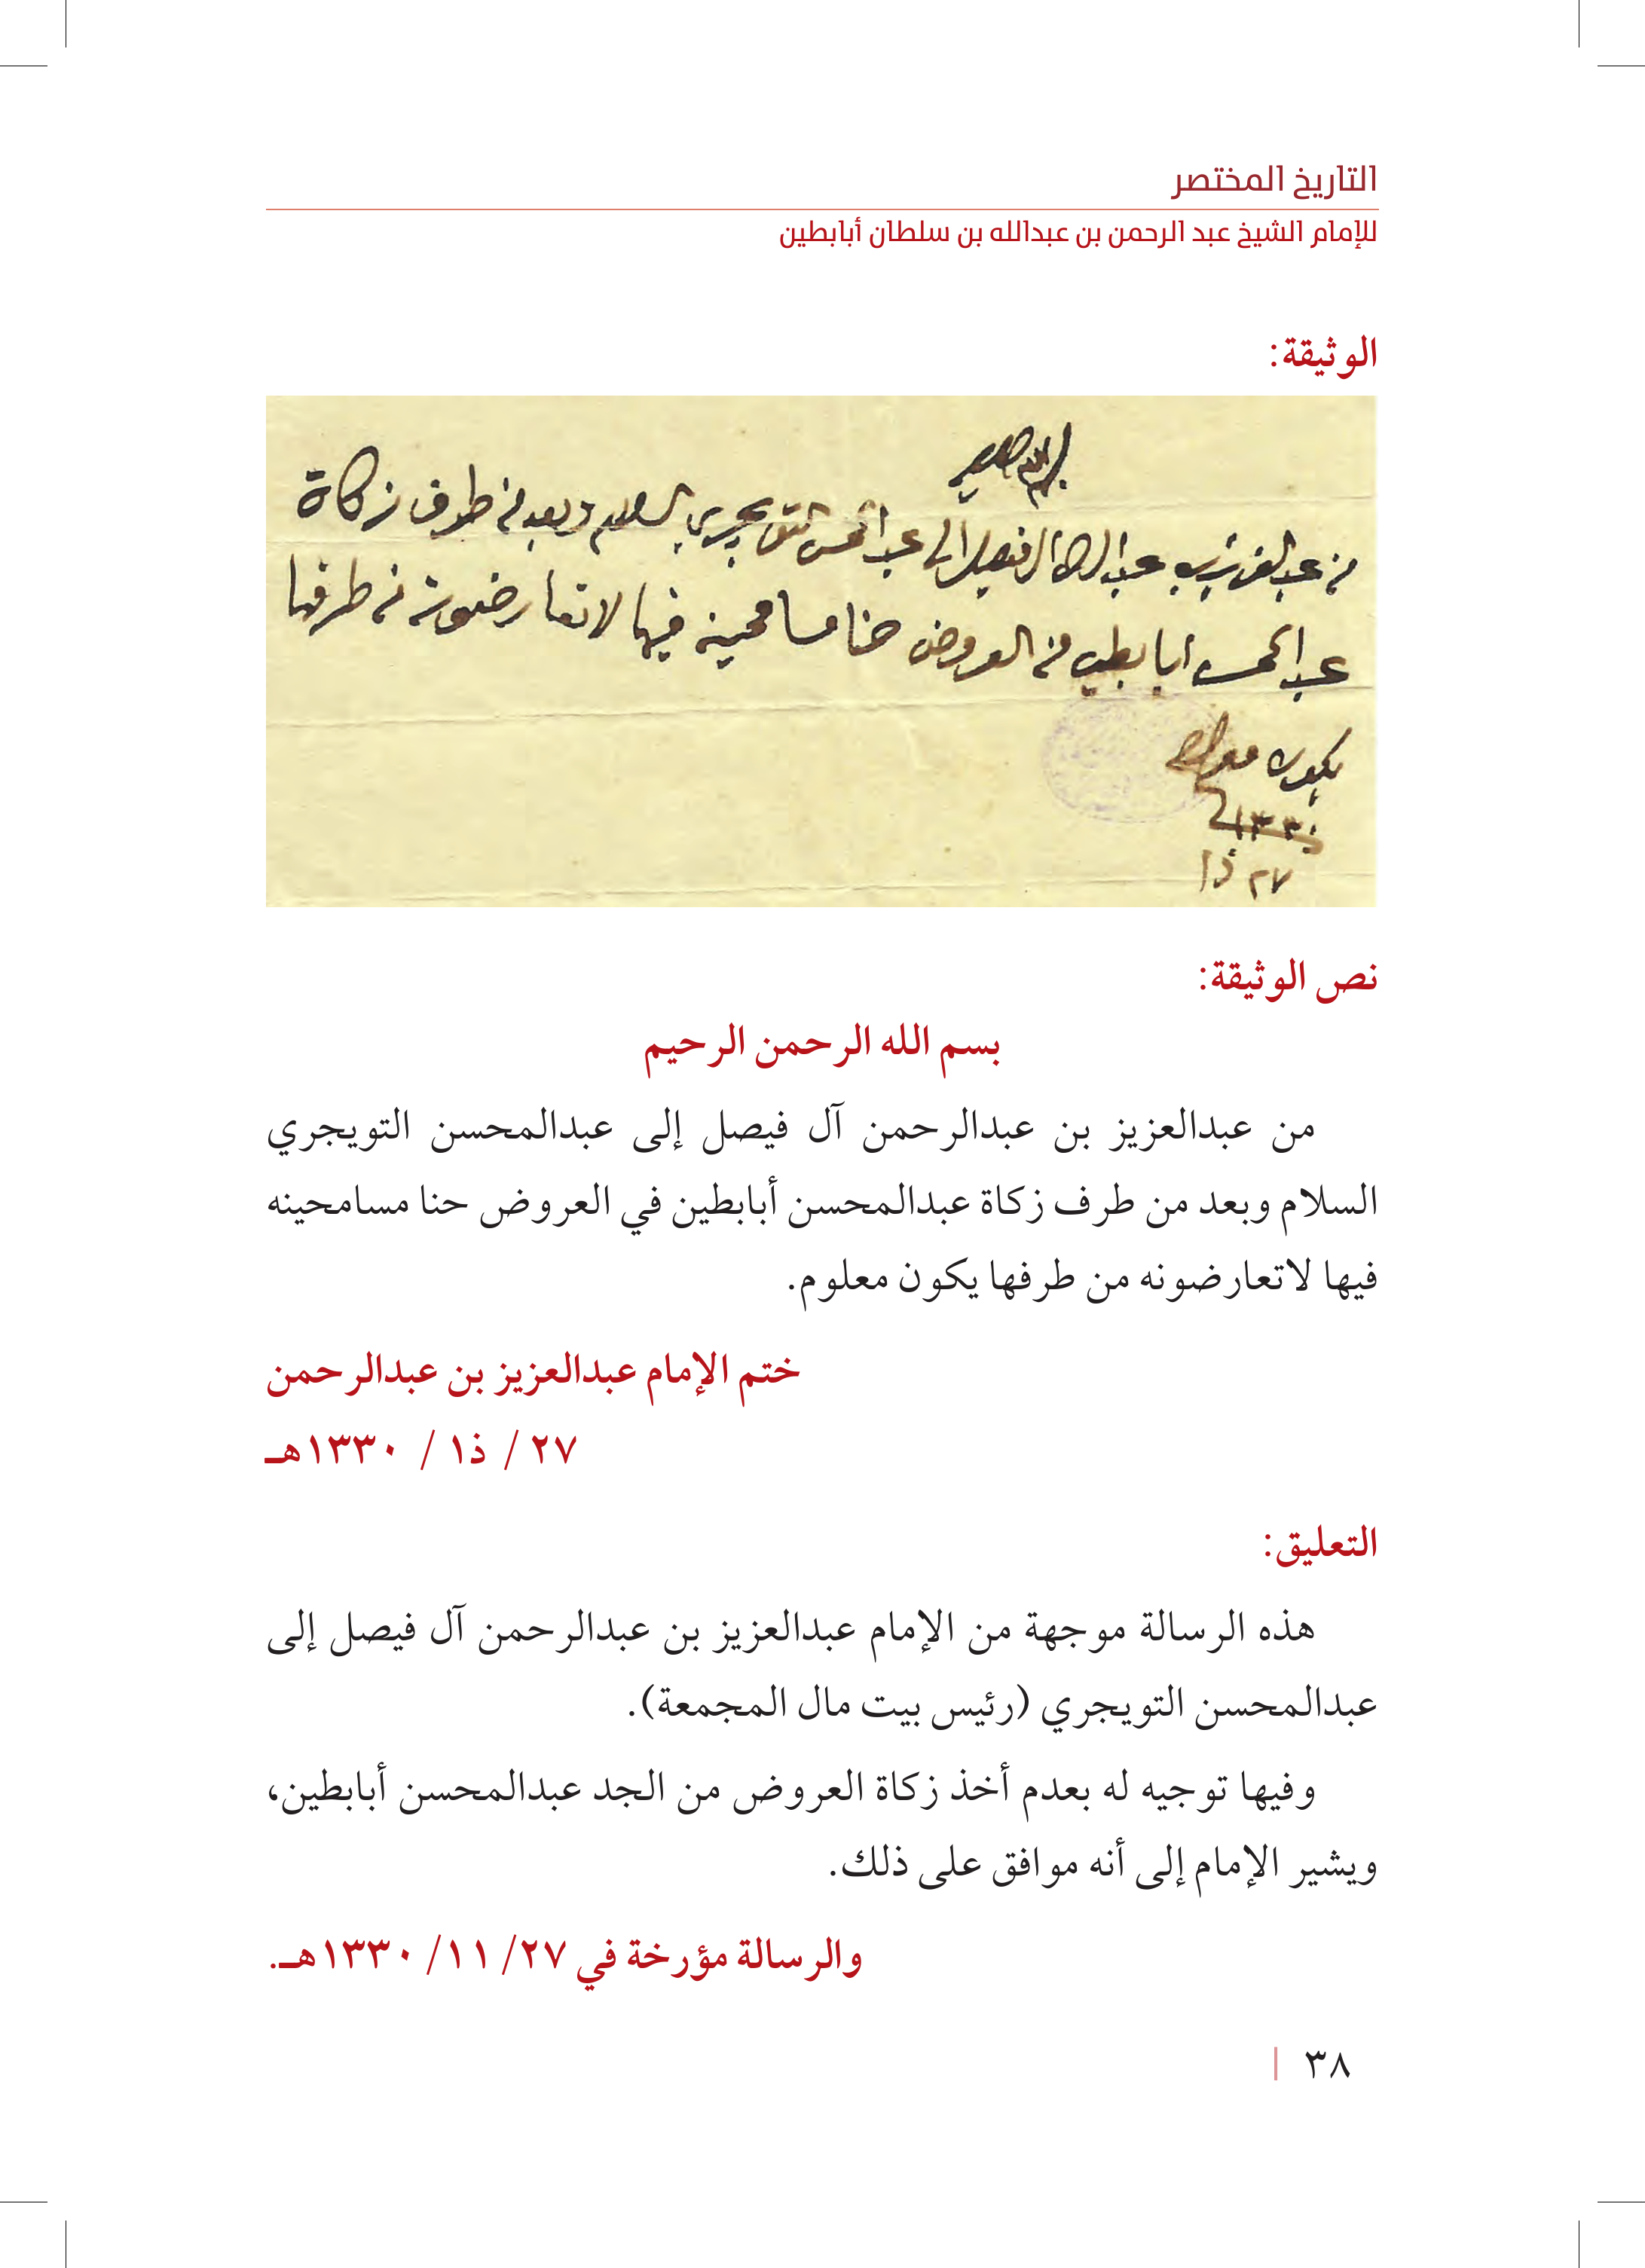 التاريخ المختصر
للإمام الشيخ عبد الرحمن بن عبدالله بن سلطان أبابطين
الوثيقة:
من عبدالعزيز بن عبدالرحمن الفيصل الى عبدالمحسن التويجري السلام وبعد من طرف زكاة
عبدالمحسن ابا بطين من العروض حنا مسامحينه فيها لا تعارضونه من طرفها
يكون معلوم
١٣٣٠
٢٧ ذا
نص الوثيقة:
بسم الله الرحمن الرحيم
من عبدالعزيز بن عبدالرحمن آل فيصل إلى عبدالمحسن التويجري
السلام وبعد من طرف زكاة عبدالمحسن أبابطين في العروض حنا مسامحينه
فيها لاتعارضونه من طرفها يكون معلوم.
ختم الإمام عبدالعزيز بن عبدالرحمن
٢٧ / ذ١ / ١٣٣٠هـ
التعليق:
هذه الرسالة موجهة من الإمام عبدالعزيز بن عبدالرحمن آل فيصل إلى
عبدالمحسن التويجري (رئيس بيت مال المجمعة).
وفيها توجيه له بعدم أخذ زكاة العروض من الجد عبدالمحسن أبابطين،
ويشير الإمام إلى أنه موافق على ذلك.
والرسالة مؤرخة في ٢٧/ ١١/ ١٣٣٠هـ.
٣٨